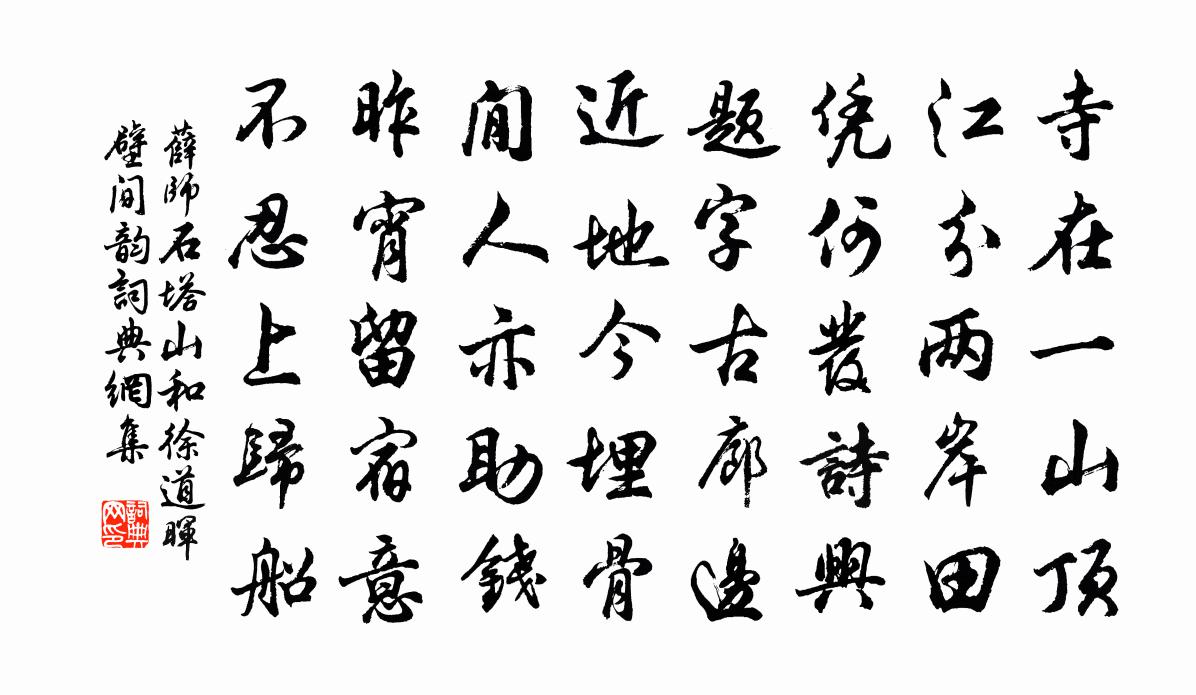 寺在一山顶
江分两岸田
凭何發詩興
题字古廊邊
近地今埋骨
閒人亦助錢
昨宵留宿意
不忍上歸船
薛師石塔山和徐道暉
壁间韵詞典網集
詞典
网印